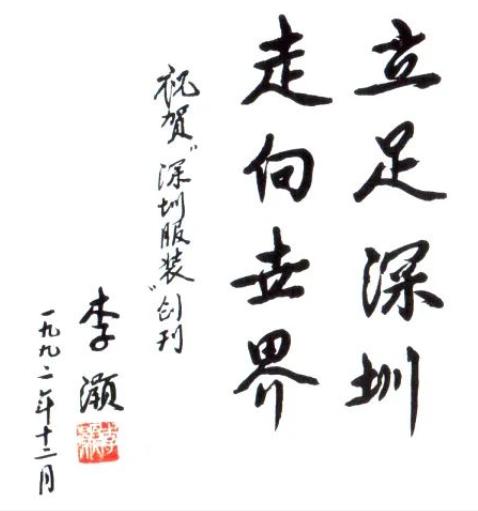 立足深圳
走向世界
祝贺"深圳服装"创刊
李灏
一九九二年十二月